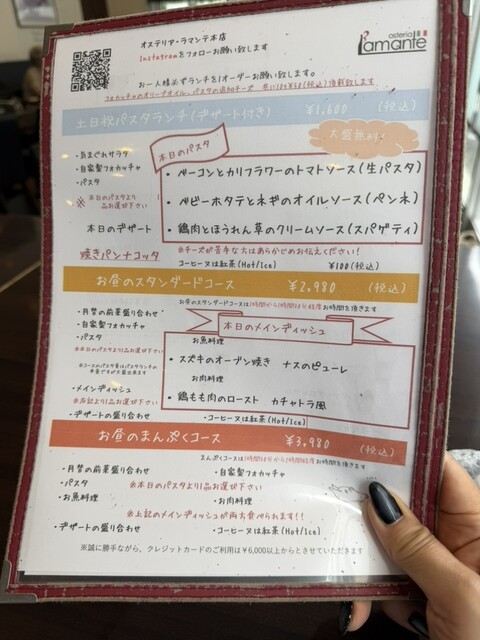 オステリア・ラマンテ本店
Instagramをフォローお願い致します
osteria
l'amante
お一人様必ずランチを1オーダーお願い致します。
フォカッチャのオリーブオイル、パスタの追加チーズ 共に
頂戴致します
土日祝パスタランチ(デザート付き) ¥1,600 (税込)
大盛無料
本日のパスタ
・気まぐれサラダ
・自家製フォカッチャ
・パスタ
※本日のパスタより
1品お選び下さい
本日のデザート
焼きパンナコッタ
・ベーコンとカリフラワーのトマトソース(生パスタ)
・ベビーホタテとネギのオイルソース(ペンネ)
・鶏肉とほうれん草のクリームソース(スパゲティ)
※チーズが苦手な方はあらかじめお伝えください!
コーヒー又は紅茶(Hot/Ice) ¥100(税込)
お昼のスタンダードコース ¥2,980 (税込)
お昼のスタンダードコースは1時間から1時間30分程度お時間を頂きます
・月替の前菜盛り合わせ
・自家製フォカッチャ
・パスタ
※本日のパスタより1品お選び下さい
・メインディッシュ
※右記より1品お選び下さい
・デザートの盛り合わせ
本日のメインディッシュ
お魚料理
・スズキのオーブン焼き ナスのピューレ
お肉料理
・鶏もも肉のロースト カチャトラ風
・コーヒー又は紅茶(Hot/Ice)
お昼のまんぷくコース ¥3,980 (税込)
まんぷくコースは1時間30分から2時間程度お時間を頂きます
・月替の前菜盛り合わせ ・自家製フォカッチャ
・パスタ ※本日のパスタより1品お選び下さい
・お魚料理 ・お肉料理
※上記のメインディッシュが両方食べられます!!
・デザートの盛り合わせ ・コーヒー又は紅茶(Hot/Ice)
※誠に勝手ながら、クレジットカードのご利用は¥6,000以上からとさせていただきます